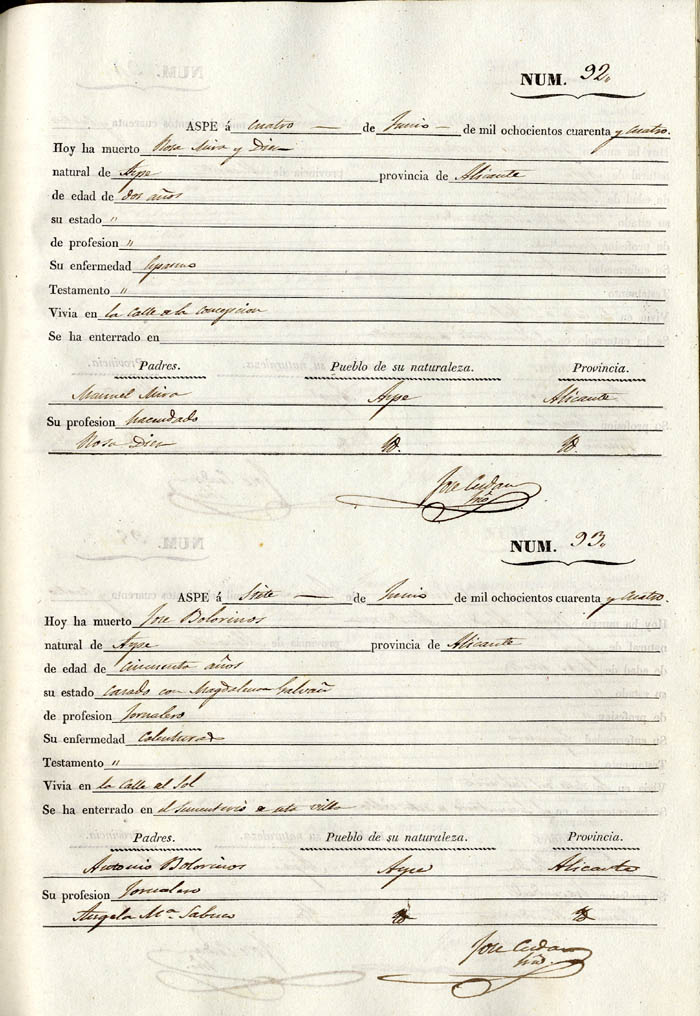 NUM. 92.
ASPE á cuatro — de Junio — de mil ochocientos cuarenta y cuatro.
Hoy ha muerto Rosa Mira y Diez
natural de Aspe provincia de Alicante
de edad de dos años
su estado "
de profesion "
Su enfermedad
Testamento "
Vivia en la calle de la concepcion
Se ha enterrado en
Padres. Pueblo de su naturaleza. Provincia.
Manuel Mira Aspe Alicante
Su profesion hacendado
Rosa Diez Yd. Yd.
Jose
NUM. 93.
ASPE á Siete — de Junio de mil ochocientos cuarenta y cuatro.
Hoy ha muerto Jose Bolorinos
natural de Aspe provincia de Alicante
de edad de cincuenta años
su estado casado con Magdalena Galvañ
de profesion Jornalero
Su enfermedad Calenturas
Testamento "
Vivia en la calle del Sol
Se ha enterrado en el Sementerio de esta villa
Padres. Pueblo de su naturaleza. Provincia.
Antonio Bolorinos Aspe Alicante
Su profesion Jornalero
Angela Mª Sabuco Yd Yd
Jose